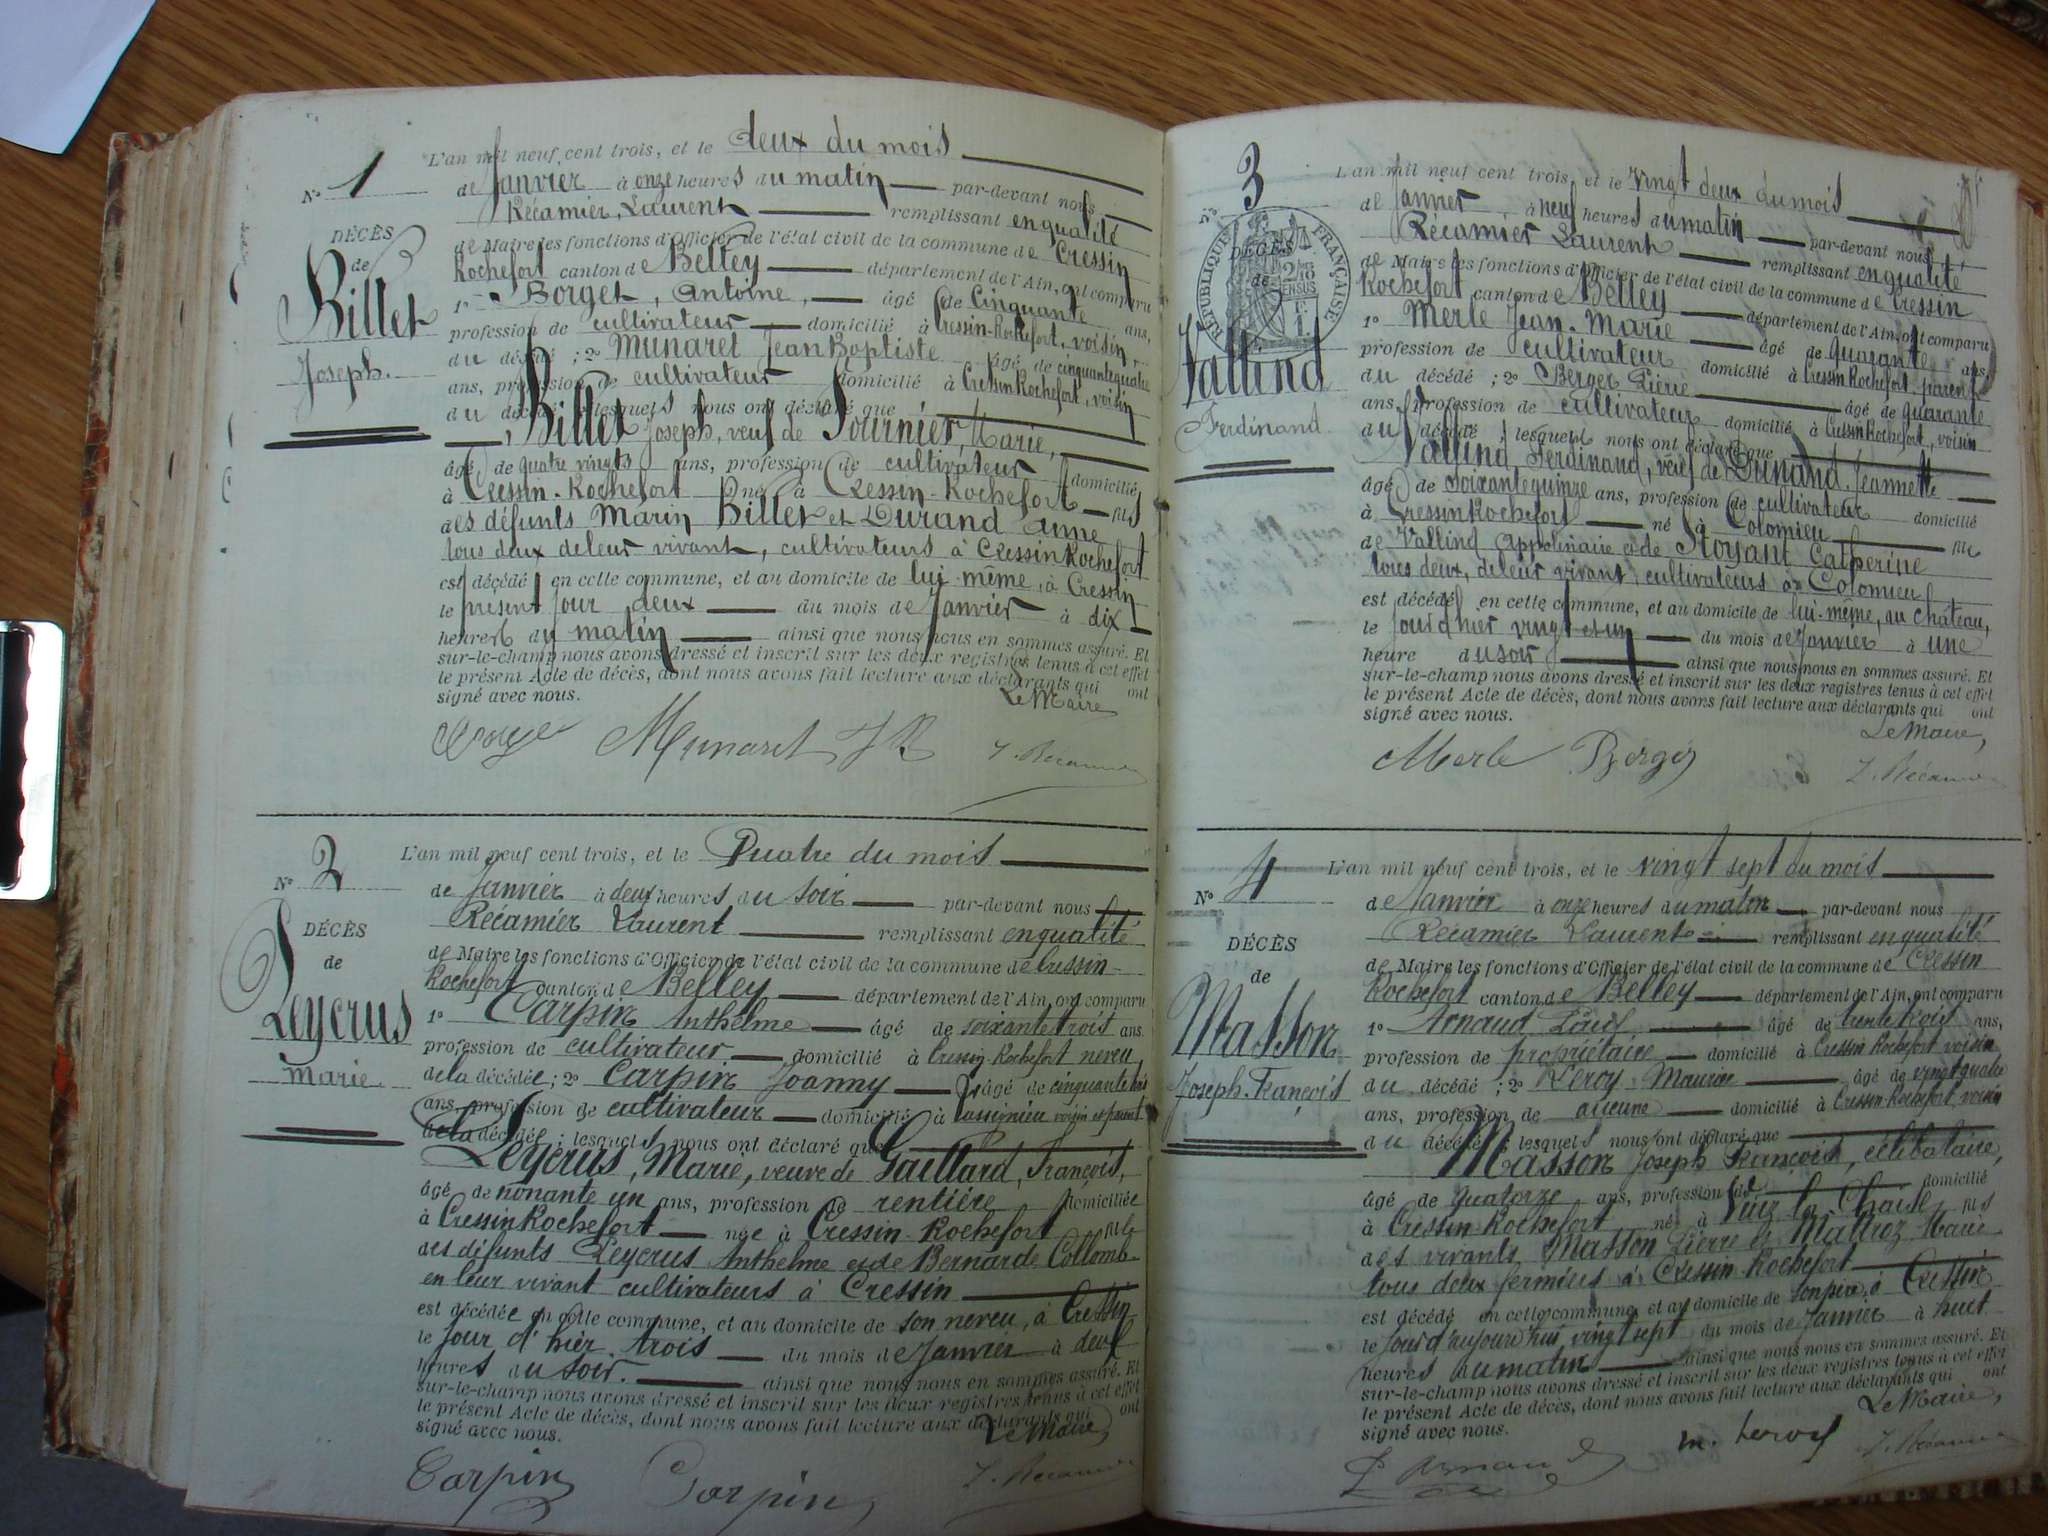 N° 1
DÉCÈS
de
Billet
Joseph.
L'an mil neuf cent trois, et le deux du mois
de Janvier à onze heures du matin par-devant nous
Récamier, Laurent remplissant en qualité
de Maire les fonctions d'Officier de l'état civil de la commune de Cressin
Rochefort canton de Belley département de l'Ain, ont comparu
1° Borget, Antoine, âgé de Cinquante ans,
profession de cultivateur domicilié à Cressin-Rochefort, voisin
du décédé ; 2° Munaret Jean Baptiste âgé de cinquante quatre
ans, profession de cultivateur domicilié à Cressin Rochefort, voisin
du décédé lesquels nous ont déclaré que
Billet Joseph, veuf de Fournier, Marie,
âgé de quatre vingts ans, profession de cultivateur domicilié
à Cressin-Rochefort né à Cressin-Rochefort fils
des défunts Marin Billet et Durand Anne
tous deux de leur vivant, cultivateurs à Cressin Rochefort
est décédé en cette commune, et au domicile de lui-même, à Cressin
le présent jour deux du mois de Janvier à dix
heures du matin ainsi que nous nous en sommes assuré. Et
sur-le-champ nous avons dressé et inscrit sur les deux registres tenus à cet effet
le présent Acte de décès, dont nous avons fait lecture aux déclarants qui ont
signé avec nous. Le Maire
Munaret J B L. Récamier
N° 2
DÉCÈS
de
Leycrus
Marie
L'an mil neuf cent trois, et le Quatre du mois
de Janvier à deux heures du soir par-devant nous
Récamier Laurent remplissant en qualité
de Maire les fonctions d'Officier de l'état civil de la commune de Cressin-
Rochefort canton de Belley département de l'Ain, ont comparu
1° Carpin Anthelme âgé de soixante trois ans
profession de cultivateur domicilié à Cressin-Rochefort neveu
de la décédée ; 2° Carpin Joanny âgé de cinquante trois
ans, profession de cultivateur domicilié à Massignieu voisin et parent
de la décédée ; lesquels nous ont déclaré que
Leycrus, Marie, veuve de Gaillard, François,
âgé de nonante un ans, profession de rentière domiciliée
à Cressin Rochefort née à Cressin-Rochefort fille
des défunts Leycrus Anthelme et de Bernarde Collomb
en leur vivant cultivateurs à Cressin
est décédée en cette commune, et au domicile de son neveu, à Cressin
le jour d'hier trois du mois de Janvier à deux
heures du soir. ainsi que nous nous en sommes assuré. Et
sur-le-champ nous avons dressé et inscrit sur les deux registres tenus à cet effet
le présent Acte de décès, dont nous avons fait lecture aux déclarants qui ont
signé avec nous. Le Maire,
Carpin Carpin L. Récamier
N° 3
RÉPUBLIQUE FRANÇAISE
DÉCÈS
de
Vallind
Ferdinand
L'an mil neuf cent trois, et le vingt deux du mois
de Janvier à neuf heures du matin par-devant nous
Récamier Laurent remplissant en qualité
de Maire les fonctions d'Officier de l'état civil de la commune de Cressin
Rochefort canton de Belley département de l'Ain, ont comparu
1° Merle Jean-Marie âgé de quarante ans,
profession de cultivateur domicilié à Cressin Rochefort, parent
du décédé ; 2° Berger Pierre âgé de quarante
ans, profession de cultivateur domicilié à Cressin Rochefort, voisin
du décédé lesquels nous ont déclaré que
Vallind Ferdinand, veuf de Dunand Jeannette
âgé de soixante quinze ans, profession de cultivateur domicilié
à Cressin Rochefort né à Colomieu fils
de Vallind Appolinaire et de Stoyant Catherine
tous deux, de leur vivant, cultivateurs à Colomieu
est décédé en cette commune, et au domicile de lui-même, au château,
le jour d'hier vingt et un du mois de Janvier à une
heure du soir ainsi que nous nous en sommes assuré. Et
sur-le-champ nous avons dressé et inscrit sur les deux registres tenus à cet effet
le présent Acte de décès, dont nous avons fait lecture aux déclarants qui ont
signé avec nous. Le Maire,
Merle Berger L. Récamier
N° 4
DÉCÈS
de
Masson
Joseph-François
L'an mil neuf cent trois, et le vingt sept du mois
de Janvier à onze heures du matin par-devant nous
Récamier Laurent remplissant en qualité
de Maire les fonctions d'Officier de l'état civil de la commune de Cressin
Rochefort canton de Belley département de l'Ain, ont comparu
1° Arnaud Louis âgé de trente trois ans,
profession de propriétaire domicilié à Cressin Rochefort voisin
du décédé ; 2° Leroy Maurice âgé de vingt quatre
ans, profession de aucune domicilié à Cressin-Rochefort, voisin
du décédé lesquels nous ont déclaré que
Masson Joseph François, célibataire,
âgé de quatorze ans, profession de domicilié
à Cressin-Rochefort né à la Chaise fils
des vivants Masson Pierre et Marie
tous deux fermiers à Cressin-Rochefort
est décédé en cette commune et au domicile de son père à Cressin
le jour d'aujourd'hui vingt sept du mois de Janvier à huit
heures du matin ainsi que nous nous en sommes assuré. Et
sur-le-champ nous avons dressé et inscrit sur les deux registres tenus à cet effet
le présent Acte de décès, dont nous avons fait lecture aux déclarants qui ont
signé avec nous. Le Maire,
L Arnaud m. Leroy L. Récamier